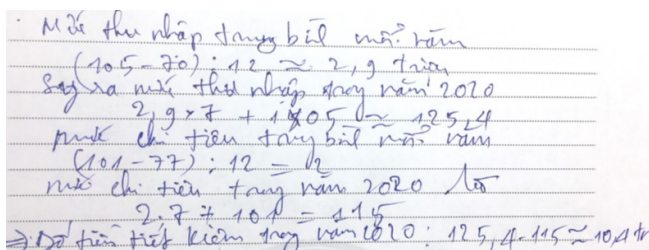 Mức thu nhập trung bình mỗi năm
(105-70) : 12 ≈ 2,9 triệu
Suy ra mức thu nhập trong năm 2020
2,9 x 7 + 105 ≈ 125,4
mức chi tiêu trung bình mỗi năm
(101-77) : 12 = 2
mức chi tiêu trong năm 2020 là
2.7 + 101 = 115
=> Số tiền tiết kiệm trong năm 2020 : 125,4-115 ≈ 10,4 tr